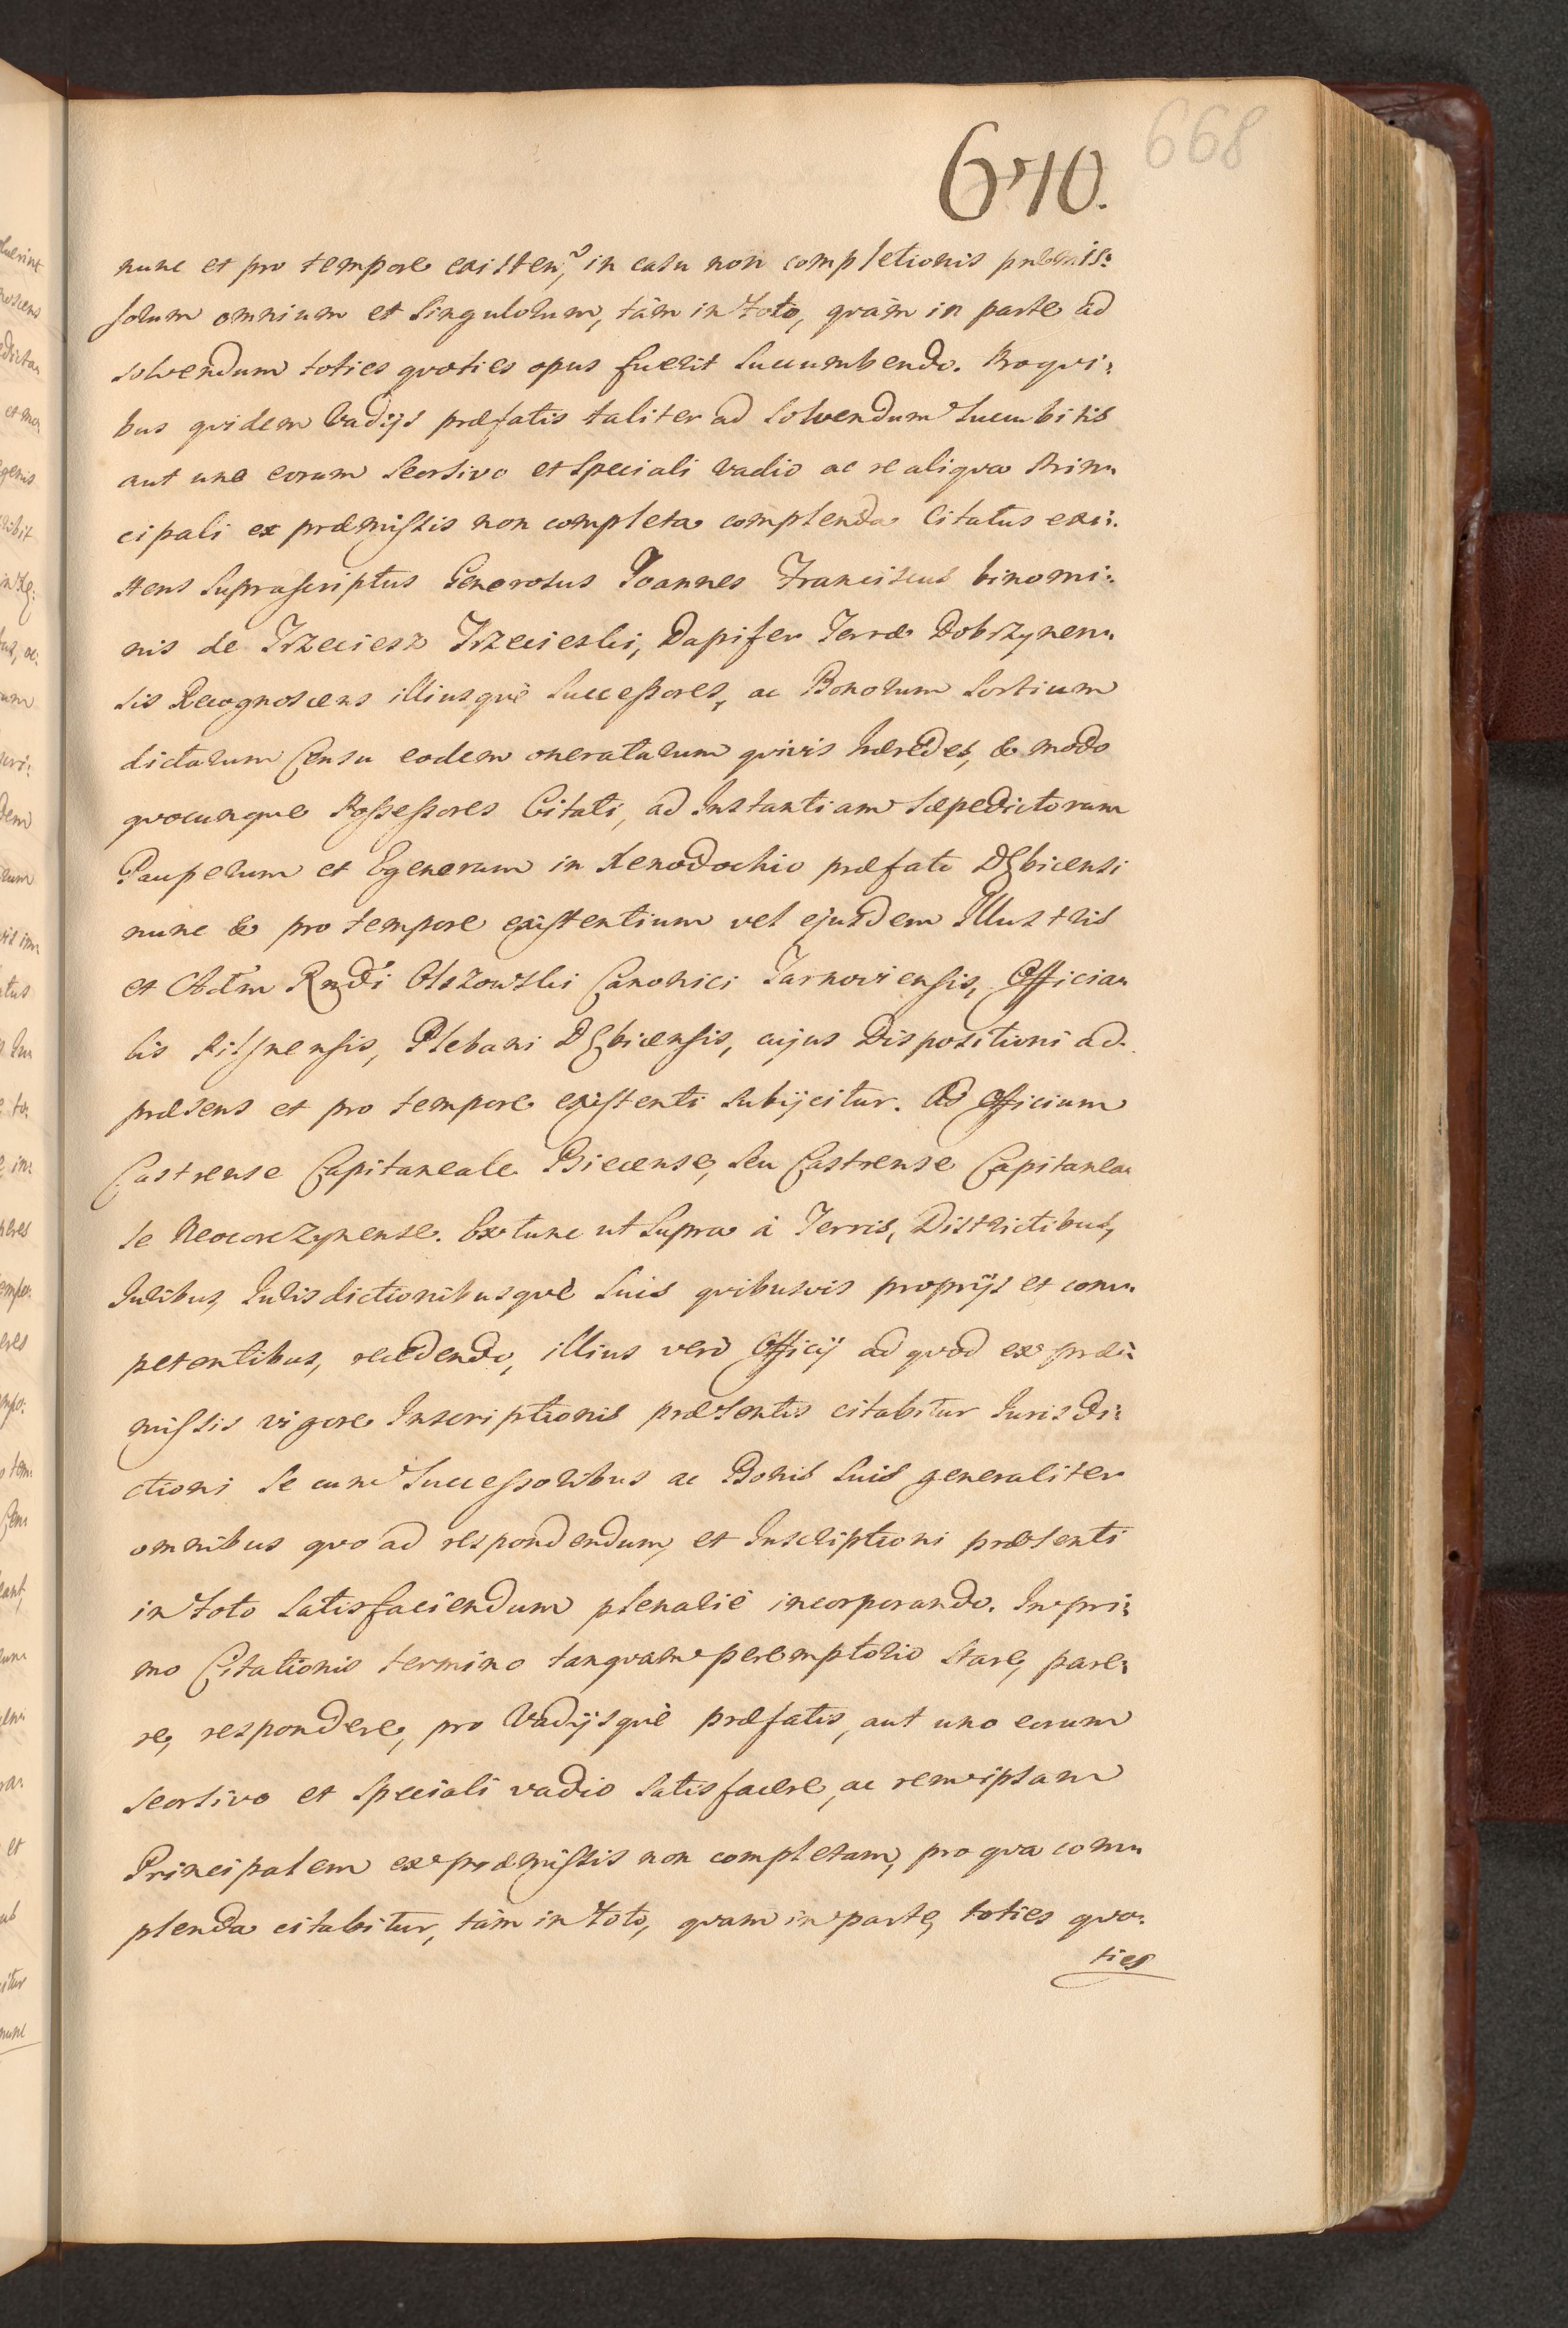 670.
668
nunc et pro tempore existen, in casu non completionis præmis:
sorum omnium et singulorum, tàm in toto, qvàm in parte ad
solvendum toties qvoties opus fuerit succumbendo. Proqvi:
bus qvidem Vadijs præfatis taliter ad solvendum succubitis
aut uno eorum seorsivo et speciali vadio ac re aliqva Prin:
cipali ex præmissis non completa complenda Citatus exi:
stens suprascriptus Generosus Joannes Franciscus binomi:
nis de Trzeciesz Trzecieski, Dapifer Terræ Dobrzynen:
sis Recognoscens illiusqvè successores, ac Bonorum sortium
dictarum Censu eodem oneratarum qvivis hæredes, & modo
qvocunque Possessores Citati, ad Instantiam sæpedictorum
Pauperum et Egenorum in Xenodochio præfato Dębicensi
nunc & pro tempore existentium vel ejusdem Illustris
et Adm Rndi Olszowski Canonici Tarnoviensis, Officia:
lis Pilsnensis, Plebani Dębicensis, cujus Dispositioni ad
præsens et pro tempore existenti subijcitur. Ad Officium
Castrense Capitaneale Biecense, seu Castrense Capitanea:
le Neocorczynense. Extunc ut supra à Terris, Districtibus,
Juribus, Jurisdictionibusqvè suis qvibusvis proprijs et com:
petentibus, recedendo, illius verò Officij ad qvod ex præ:
missis vigore Inscriptionis præsentis citabitur Jurisdi:
ctioni se cum successoribus ac Bonis suis generaliter
omnibus qvo ad respondendum, et Inscriptioni præsenti
in toto satisfaciendum plenariè incorporando. In pri:
mo Citationis termino tanqvam peremptorio stare, pare:
re, respondere, pro Vadijsqvè præfatis, aut uno eorum
seorsivo et speciali vadio satisfacere, ac rem ipsam
Principalem ex præmissis non completam, pro qva com:
plenda citabitur, tàm in toto, qvam in parte, toties qvo:
ties